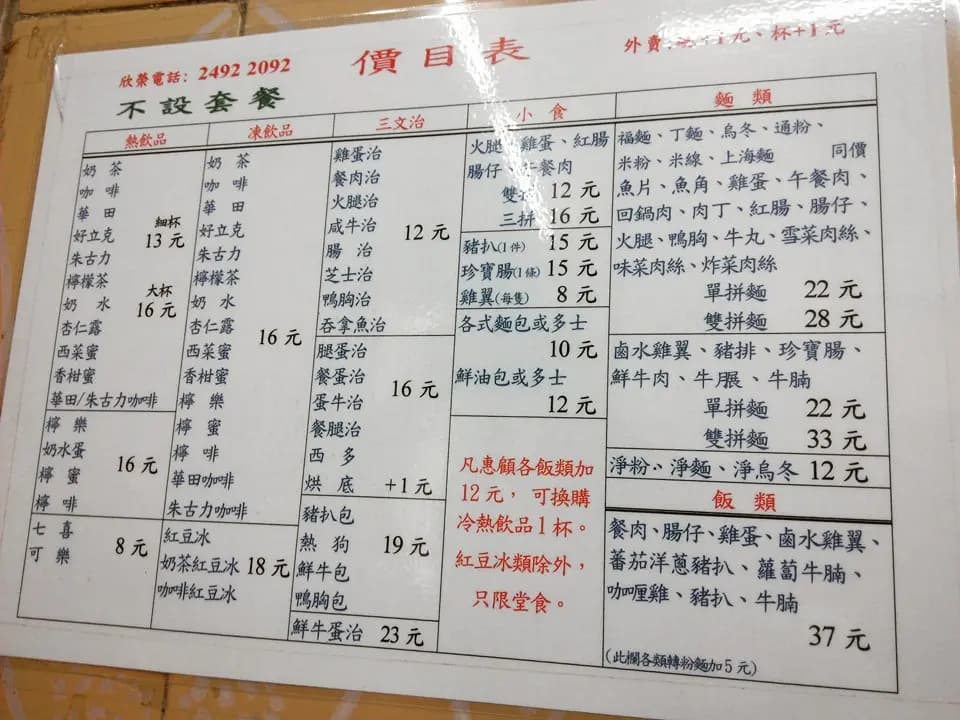 欣榮電話：2492 2092
價目表
外賣：碗+1元、杯+1元
不設套餐
熱飲品
奶茶
咖啡
華田
好立克
朱古力
細杯
13元
檸檬茶
奶水
大杯
16元
杏仁露
西菜蜜
香柑蜜
華田/朱古力咖啡
檸樂
奶水蛋
檸蜜
檸啡
16元
七喜
可樂
8元
凍飲品
奶茶
咖啡
華田
好立克
朱古力
檸檬茶
奶水
杏仁露
西菜蜜
香柑蜜
檸樂
檸蜜
檸啡
華田咖啡
朱古力咖啡
16元
紅豆冰
奶茶紅豆冰 18元
咖啡紅豆冰
三文治
雞蛋治
餐肉治
火腿治
咸牛治 12元
腸治
芝士治
鴨胸治
吞拿魚治
腿蛋治
餐蛋治
蛋牛治 16元
餐腿治
西多
烘底 +1元
豬扒包
熱狗 19元
鮮牛包
鴨胸包
鮮牛蛋治 23元
小食
火腿、雞蛋、紅腸
腸仔、午餐肉
雙拼 12元
三拼 16元
豬扒(1件) 15元
珍寶腸(1條) 15元
雞翼(每隻) 8元
各式麵包或多士
10元
鮮油包或多士
12元
凡惠顧各飯類加
12元，可換購
冷熱飲品1杯。
紅豆冰類除外，
只限堂食。
麵類
福麵、丁麵、烏冬、通粉、
米粉、米線、上海麵 同價
魚片、魚角、雞蛋、午餐肉、
回鍋肉、肉丁、紅腸、腸仔、
火腿、鴨胸、牛丸、雪菜肉絲、
味菜肉絲、炸菜肉絲
單拼麵 22元
雙拼麵 28元
鹵水雞翼、豬排、珍寶腸、
鮮牛肉、牛𦟌、牛腩
單拼麵 22元
雙拼麵 33元
淨粉、淨麵、淨烏冬 12元
飯類
餐肉、腸仔、雞蛋、鹵水雞翼、
蕃茄洋蔥豬扒、蘿蔔牛腩、
咖喱雞、豬扒、牛腩
37元
(此欄各類轉粉麵加5元)